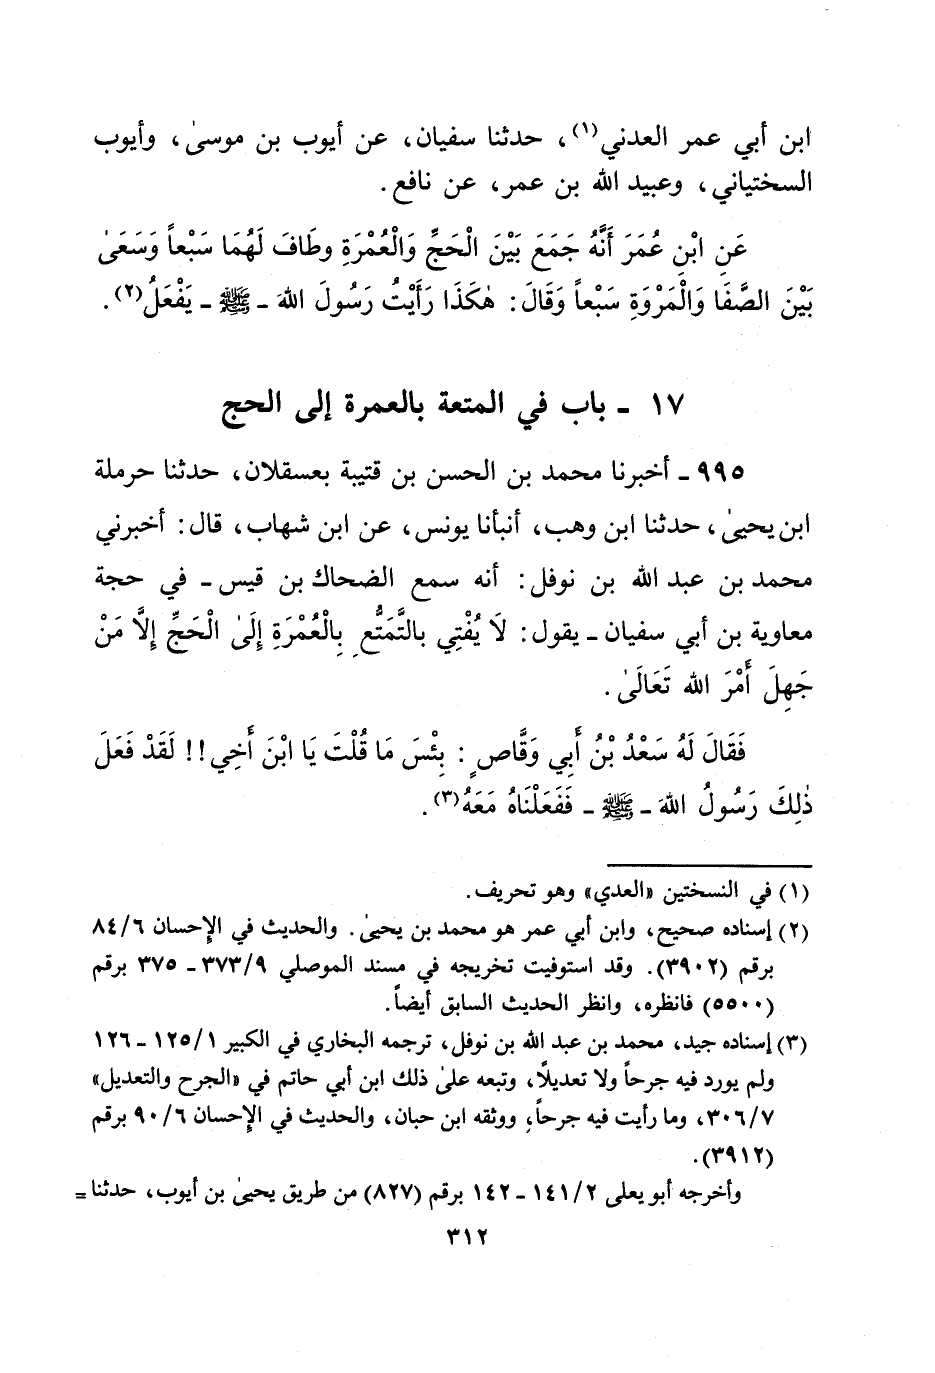 ابن أبي عمر العدني(١)، حدثنا سفيان، عن أيوب بن موسىٰ، وأيوب
السختياني، وعبيد الله بن عمر، عن نافع.
عَنِ ابْنِ عُمَرَ أَنَّهُ جَمَعَ بَيْنَ الْحَجِّ وَالْعُمْرَةِ وطَافَ لَهُمَا سَبْعاً وَسَعَىٰ
بَيْنَ الصَّفَا وَالْمَرْوَةِ سَبْعاً وَقَالَ: هٰكَذَا رَأَيْتُ رَسُولَ اللهَ - ﷺ - يَفْعَلُ(٢).
١٧ - باب في المتعة بالعمرة إلى الحج
٩٩٥ - أخبرنا محمد بن الحسن بن قتيبة بعسقلان، حدثنا حرملة
ابن يحيىٰ، حدثنا ابن وهب، أنبأنا يونس، عن ابن شهاب، قال: أخبرني
محمد بن عبد الله بن نوفل: أنه سمع الضحاك بن قيس - في حجة
معاوية بن أبي سفيان - يقول: لَا يُفْتِي بالتَّمَتُّعِ بِالْعُمْرَةِ إِلَىٰ الْحَجِّ إِلاَّ مَنْ
جَهِلَ أَمْرَ الله تَعَالَىٰ.
فَقَالَ لَهُ سَعْدُ بْنُ أَبِي وَقَّاصٍ: بِئْسَ مَا قُلْتَ يَا ابْنَ أَخِي!! لَقَدْ فَعَلَ
ذٰلِكَ رَسُولُ اللهَ - ﷺ - فَفَعَلْنَاهُ مَعَهُ(٣).
(١) في النسختين «العدي» وهو تحريف.
(٢) إسناده صحيح، وابن أبي عمر هو محمد بن يحيىٰ. والحديث في الإحسان ٨٤/٦
برقم (٣٩٠٢). وقد استوفيت تخريجه في مسند الموصلي ٣٧٣/٩ - ٣٧٥ برقم
(٥٥٠٠) فانظره، وانظر الحديث السابق أيضاً.
(٣) إسناده جيد، محمد بن عبد الله بن نوفل، ترجمه البخاري في الكبير ١٢٥/١ - ١٢٦
ولم يورد فيه جرحاً ولا تعديلًا، وتبعه علىٰ ذلك ابن أبي حاتم في «الجرح والتعديل»
٣٠٦/٧، وما رأيت فيه جرحاً، ووثقه ابن حبان، والحديث في الإحسان ٩٠/٦ برقم
(٣٩١٢).
وأخرجه أبو يعلى ١٤١/٢ - ١٤٢ برقم (٨٢٧) من طريق يحيىٰ بن أيوب، حدثنا =
٣١٢